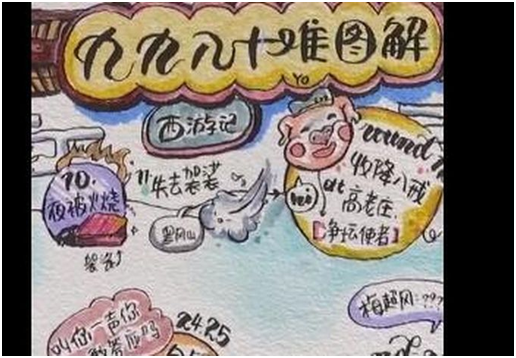 九九八十难图解
西游记
YO
round
10.
夜被火烧
11
失去袈裟
黑风山
袈裟
收降八戒
at
高老庄
【净坛使者】
梅超风:???
叫你一声你
敢答应吗
24.25